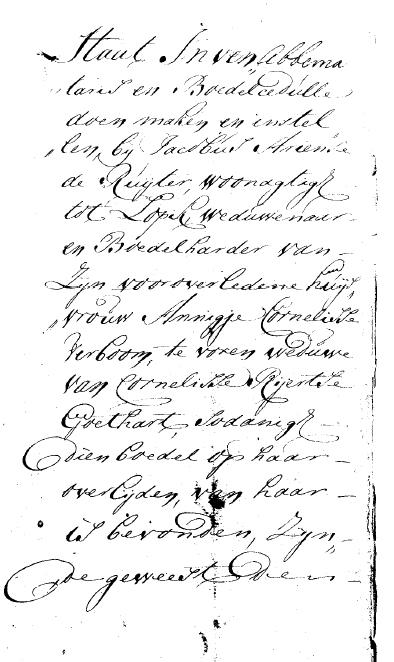 Staat Inven Abbema
taris en Boedelcedulle
doen maken en instel
len, bij Jacobus Ariense
de Ruijter, woonagtigh
tot Lopik, weduwenaar
en Boedelharder van
Zijn vooroverledene huijs
vrouw Annigje Cornelisse
Verboom, te voren weduwe
van Cornelisse Rijertse
Goethart, sodanigh
dien boedel op haar
overlijden, van haar
is bevonden, Zijn
de geweest Den